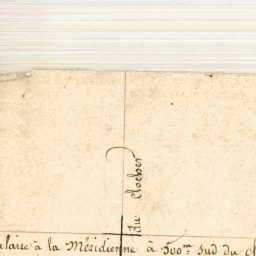 du clocher
laire à la Méridienne à 500.m Sud du